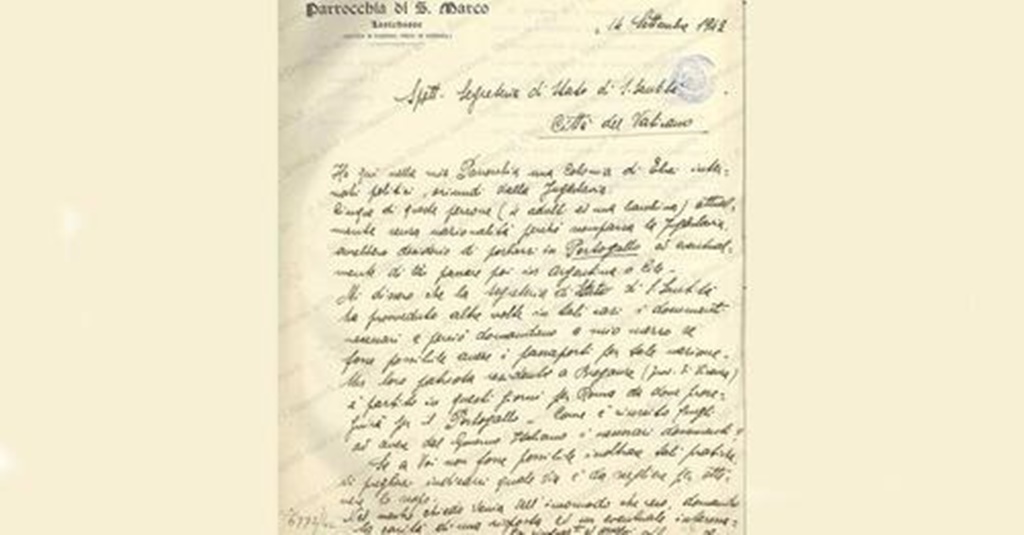 Parrocchia di S. Marco
14 Settembre 1942
Spett. Segreteria di Stato di S. Santità
Città del Vaticano
Ho qui nella mia Parrocchia una colonia di Ebrei inter-
nati politici, oriundi dalla Jugoslavia.
Cinque di queste persone (4 adulti ed una bambina) attual-
mente senza nazionalità perché scomparsa la Jugoslavia,
avrebbero desiderio di portarsi in Portogallo ed eventual-
mente di là passare poi in Argentina o Cile.
Mi dicono che la Segreteria di Stato di S. Santità
ha provveduto altre volte in tali casi i documenti
necessari e perciò domandano a mio mezzo se
fosse possibile avere i passaporti per tale nazione.
Un loro patriota residente a Breganze (prov. di Vicenza)
è partito in questi giorni per Roma da dove prose-
guirà per il Portogallo. Come è riuscito quegli
ad avere dal Governo Italiano i necessari documenti?
Se a Voi non fosse possibile inoltrare tali pratiche
di indicarmi quale via è da scegliere per otte-
nere lo scopo.
Nel mentre chiedo venia dell'incomodo che reco, domando
la carità di una risposta ed un eventuale